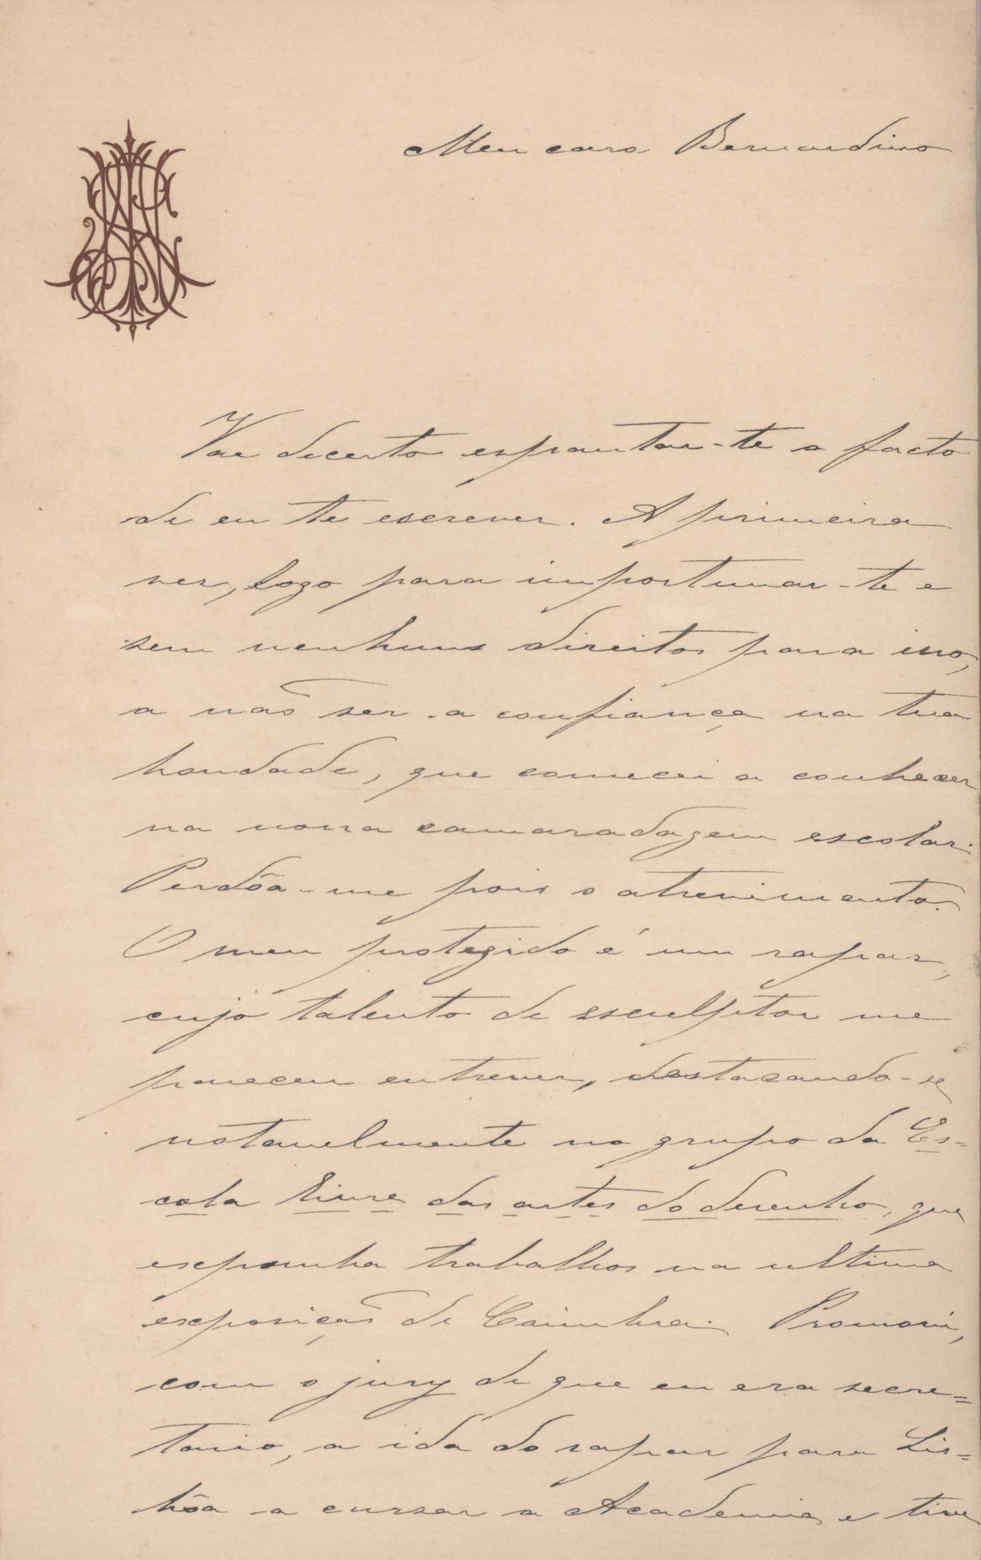 Meu caro Bernardino
Vae decerto espantar-te o facto
de eu te escrever. A primeira
vez, logo para importunar-te e
sem nenhuns direitos para isso,
a não ser a confiança na tua
bondade, que comecei a conhecer
na nossa camaradagem escolar.
Perdôa-me pois o atrevimento.
O meu protegido é um rapaz,
cujo talento de esculptor me
pareceu entrever, destacando-se
notavelmente no grupo da Es-
cola Livre das artes do desenho, que
expunha trabalhos na ultima
exposição de Coimbra. Promovi,
com o jury de que eu era secre=
tario, a ida do rapaz para Lis=
bôa a cursar a Academia, e tive